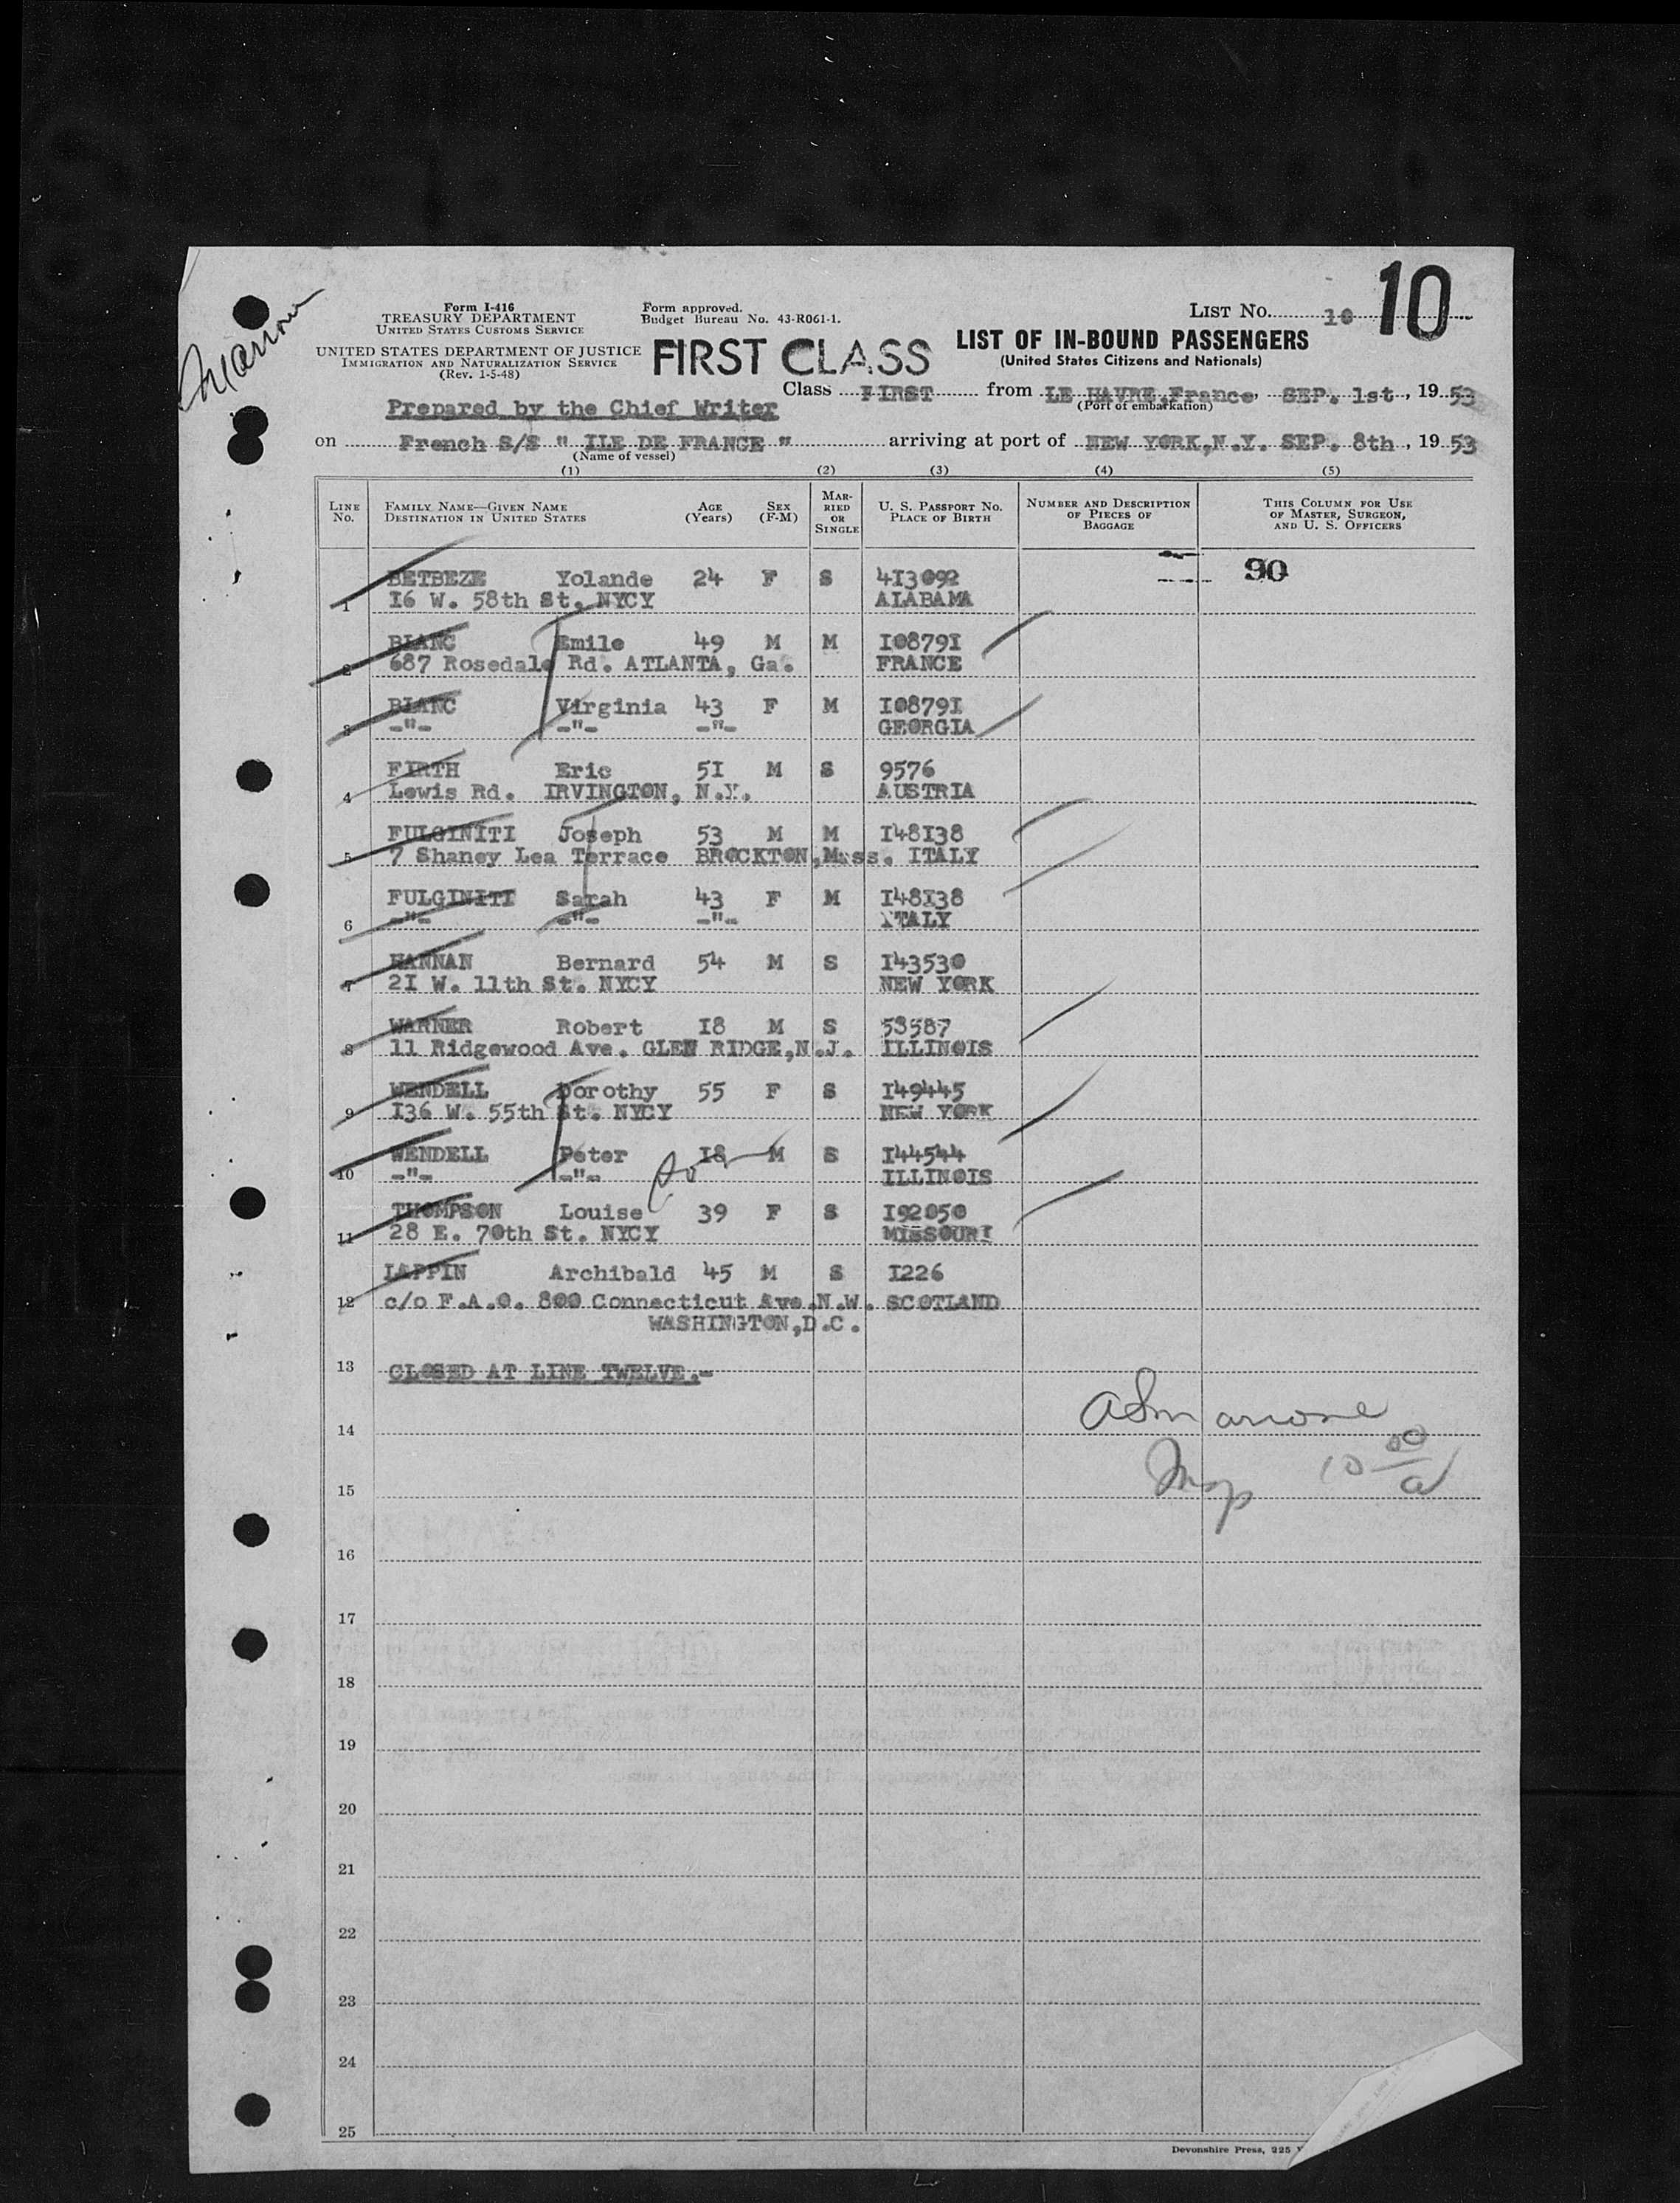 Form I-416
TREASURY DEPARTMENT
UNITED STATES CUSTOMS SERVICE
UNITED STATES DEPARTMENT OF JUSTICE
IMMIGRATION AND NATURALIZATION SERVICE
(Rev. 1-5-48)
Form approved.
Budget Bureau No. 43-R061-1.
FIRST CLASS
LIST NO. 10 10
LIST OF IN-BOUND PASSENGERS
(United States Citizens and Nationals)
Class FIRST from LE HAVRE, France, SEP. 1st, 1953
(Port of embarkation)
Prepared by the Chief Writer
on French S/S " ILE DE FRANCE " arriving at port of NEW YORK, N.Y. SEP. 8th, 1953
(Name of vessel)
(1) (2) (3) (4) (5)
LINE NO. FAMILY NAME—GIVEN NAME DESTINATION IN UNITED STATES AGE (Years) SEX (F-M) MARRIED OR SINGLE U. S. PASSPORT NO. PLACE OF BIRTH NUMBER AND DESCRIPTION OF PIECES OF BAGGAGE THIS COLUMN FOR USE OF MASTER, SURGEON, AND U. S. OFFICERS
BETBEZE Yolande 24 F S 4I3092 90
1 I6 W. 58th St. NYCY ALABAMA
BLANC Emile 49 M M I0879I
2 687 Rosedale Rd. ATLANTA, Ga. FRANCE
BLANC Virginia 43 F M I0879I
3 -"- -"- -"- GEORGIA
FIRTH Eric 5I M S 9576
4 Lewis Rd. IRVINGTON, N.Y. AUSTRIA
FULGINITI Joseph 53 M M I48I38
5 7 Shaney Lea Terrace BROCKTON, Mass. ITALY
FULGINITI Sarah 43 F M I48I38
6 -"- -"- -"- ITALY
HANNAN Bernard 54 M S I43530
7 2I W. 11th St. NYCY NEW YORK
WARNER Robert I8 M S 53587
8 11 Ridgewood Ave. GLEN RIDGE, N.J. ILLINOIS
WENDELL Dorothy 55 F S I49445
9 I36 W. 55th St. NYCY NEW YORK
WENDELL Peter I8 M S I44544
10 -"- -"- ILLINOIS
THOMPSON Louise 39 F S I92050
11 28 E. 70th St. NYCY MISSOURI
LAPPIN Archibald 45 M S I226
12 c/o F.A.O. 800 Connecticut Ave. N.W. SCOTLAND
WASHINGTON, D.C.
13 CLOSED AT LINE TWELVE.-
14
Insp 10 00/a
15
16
17
18
19
20
21
22
23
24
25
Devonshire Press, 225